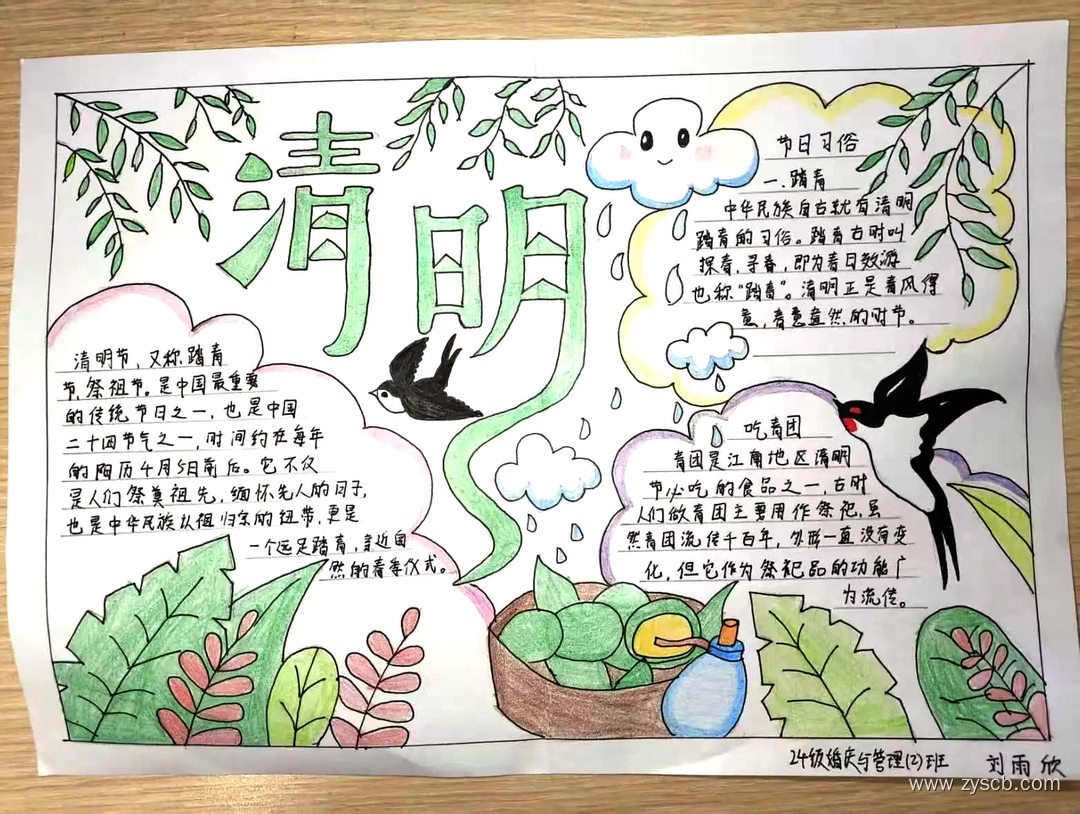 清明
清明节，又称踏青
节，祭祖节。是中国最重要
的传统节日之一，也是中国
二十四节气之一，时间约在每年
的阳历4月5日前后。它不仅
是人们祭奠祖先，缅怀先人的日子，
也是中华民族认祖归宗的纽带，更是
一个远足踏青，亲近自
然的春季仪式。
节日习俗
一.踏青
中华民族自古就有清明
踏青的习俗。踏青古时叫
探春，寻春，即为春日郊游
也称“踏青”。清明正是春风得
意，春意盎然的时节。
吃青团
青团是江南地区清明
节必吃的食品之一，古时
人们做青团主要用作祭祀，虽
然青团流传千百年，外形一直没有变
化，但它作为祭祀品的功能广
为流传。
24级婚庆与管理(2)班 刘雨欣
www.zyscb.com